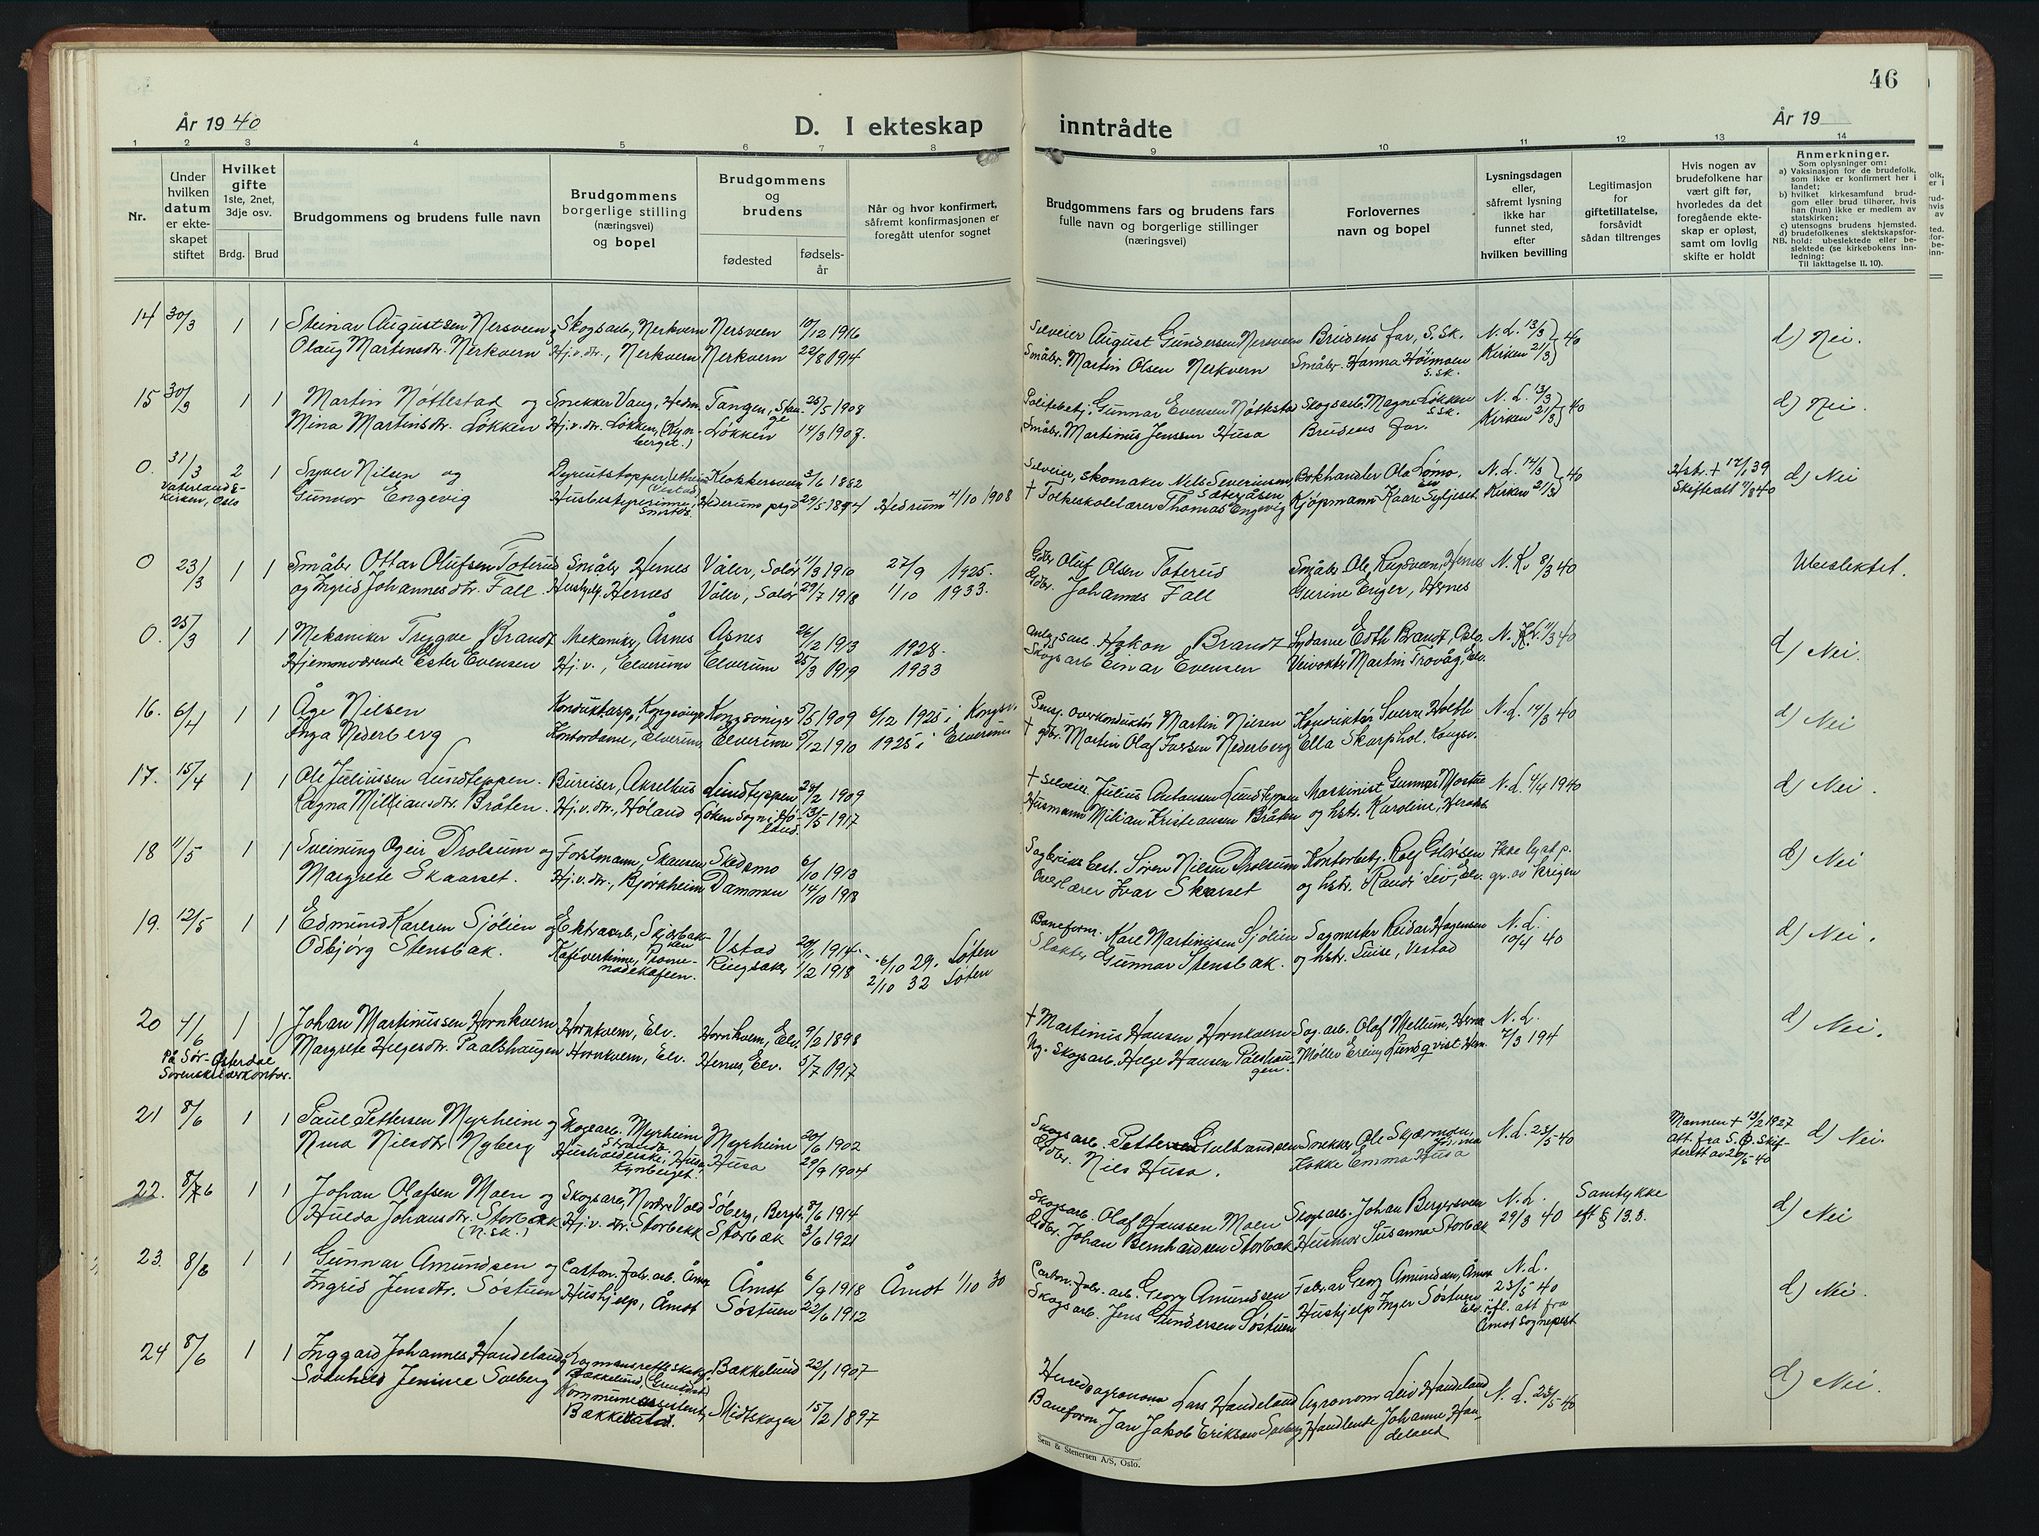 46
År 19 40
D. I ekteskap
inntrådte
År 19
1 2 3 4 5 6 7 8 9 10 11 12 13 14
Nr.
Under hvilken datum er ekteskapet stiftet
Hvilket gifte 1ste, 2net, 3dje osv.
Brdg. Brud
Brudgommens og brudens fulle navn
Brudgommens borgerlige stilling (næringsvei) og bopel
Brudgommens og brudens
fødested
fødsels-år
Når og hvor konfirmert, såfremt konfirmasjonen er foregått utenfor sognet
Brudgommens fars og brudens fars fulle navn og borgerlige stillinger (næringsvei)
Forlovernes navn og bopel
Lysningsdagen eller, såfremt lysning ikke har funnet sted, efter hvilken bevilling
Legitimasjon for giftetillatelse, forsåvidt sådan tiltrenges
Hvis nogen av brudefolkene har vært gift før, hvorledes da det foregående ekteskap er opløst, samt om lovlig skifte er holdt
Anmerkninger.
Som oplysninger om:
a) Vaksinasjon for de brudefolk, som ikke er konfirmert her i landet;
b) hvilket kirkesamfund brudgom eller brud tilhører, hvis han (hun) ikke er medlem av statskirken;
c) utensogns brudens hjemsted.
d) brudefolkenes slektskapsforhold: ubeslektede eller beslektede (se kirkebokens innledning:
NB. Til iakttagelse II. 10).
14 30/3 1 1 Steinar Augustsen Nersveen og Skogsarb., Nerkvern Nersveen 10/12 1916 Selveier August Gundersen Nersveen Brudens far, S.Sk. N.L. 13/3 40 d) Nei.
Olaug Martinsdtr. Nerkvern Hj.v. dtr., Nerkvern Nerkvern 22/8 1914 Småbr. Martin Olsen Nerkvern Småbr. Hanna Høimoen S.Sk. Kirken 21/3
15 30/3 1 1 Martin Nøttestad og Snekker Vang, Hedm. Tangen, Stange 25/5 1908 Politibetj. Gunnar Evensen Nøttestad Skogsarb. Magne Løkken S.Sk. N.L. 13/3 40 d) Nei.
Mina Martinsdtr. Løkken Hj.v. dtr. Løkken, (Kynberget.) Løkken 14/3 1907. Småbr. Martinus Jenssen Husa Brudens far. Kirken 21/3
0. 31/3 2 1 Syver Nilsen og Klokkersveen 3/6 1882 Selveier, skomaker Nils Severinsen Sæteråsen Bokhandler Ola Lømo, N.L. 14/3 40 Hsk. + 12/1 39 d) Nei
Vaterlands-kirken, Oslo Gunvor Engevig Husbestyrerinne, Hederum prgd 29/5 1894 Hedrum 4/10 1908 + Folkeskolelærer Thomas Engevig Kjøpmann Kaare Syljeset Kirken 21/3 Skifteatt 1/3 40
0 23/3 1 1 Småbr Ottar Olufsen Toterud Småbr Hernes Våler, Solør 11/3 1910 27/9 1925. Gbr Oluf Olsen Toterud Småbr. Ole Rugsveen, Hernes N.K. 8/3 40 Ubeslektet.
og Ingrid Johannesdtr. Fall. Hushj. Hernes Våler, Solør 29/7 1918 1/10 1933. Gdbr. Johannes Fall Gurine Enger, Hernes
0. 25/3 1 1 Mekaniker Trygve Brandt Mekaniker, Åsnes Åsnes 26/12 1913 1928. Anlegsarb. Håkon Brandt Sydame Edth Brandt, Oslo N.L. 11/3 40 d) Nei.
Hjemmeværende Ester Evensen Hj.v., Elverum Elverum 25/3 1919 1933 Skogsarb Einar Evensen Veivokter Martin Trovåg, Elv.
16. 6/4 1 1 Åge Nilsen Konduktørasp., Kongsvinger Kongsvinger 5/5 1909 6/12 1925 i Kongsv. Pensj. overkonduktør Martin Nilsen Konduktør Sverre Holth N.L. 14/3 40 d) Nei
Inga Nederberg Kontordame, Elverum Elverum 5/12 1910 1925 i Elverum + gbr. Martin Olaf Larsen Nederberg Ella Skarphol, Kongsv.
17. 15/4 1 1 Ole Juliussen Lundteppen. Bureiser, Akselhus Lundteppen 24/2 1909 + Selveier Julius Antonsen Lundteppen Maskinist Gunnar Mostue N.L. 4/4 1940 d) Nei.
Ragna Milliansdtr. Bråten. Hj.v. dtr., Høland Løken Sogn, Høland 13/5 1917 Husmann Milian Kristiansen Bråten og hstr. Karoline, Hernes
18 11/5 1 1 Sveinung Ogeir Drolsum og Forstmann, Skansen Skedsmo 6/10 1913 Sagbruksbest. Søren Nilsen Drolsum Kontorbetj. Rolf Glørsen Ikke lyst p. d) Nei
Margrete Skaarset. Hj.v. dtr., Bjørkheim Dammen 14/10 1918 Overlærer Ivar Skaarset og hstr. Randi Lei, Elv. gr. av krigen
19. 12/5 1 1 Edmund Karlsen Sjølien og Ekstraarb., Skjærbekken Ustad 20/1 1914. 6/10 29. Løten Baneform. Karl Martinusen Sjølien Sagmester Reidar Hagensen N.L. d) Nei.
Oddbjørg Stensbak. Kafévertinne, Promenadekafeen. Ringsaker 1/2 1918 2/10 32 Løten Slakter Gunnar Stensbak. og hstr. Luise, Vestad 10/4 40
20 4/6 1 1 Johan Martinussen Hornkvern Hornkvern, Elv. Hornkvern, Elv. 9/2 1898 + Martinus Hansen, Hornkvern Sag.arb. Olaf Mellum, Hernes N.L. d) Nei.
På Sør-Østerdal Sorenskriverkontor. Margrete Helgesdtr. Paalshaugen Hornkvern, Elv. Hernes, Elv. 5/7 1917 Ng. Skogsarb. Helge Hansen Pålshaugen. Møller Erling Lundqvist Hern. 7/3 194
21 8/6 1 1 Paul Pettersen Myrheim og Skogsarb. Myrheim Myrheim 20/6 1902 Skogsarb. Petter Gulbrandsen Snekker Ole Skjærmoen, N.L. 23/5 40 Mannen + 13/2 1927 d) Nei.
Nina Nilsdtr. Nyberg Husholderske, Husa Kynberget. Husa 29/9 1904 Gdbr. Nils Husa. Kokke Emma Husa att. fra S.Ø. Skifterett av 20/5-40
22. 8/6 1 1 Johan Olafsen Moen og Skogsarb, Nordre Vold Søberg, Bergl. 8/6 1914 Skogsarb. Olaf Hanssen Moen Skogsarb. Johan Bergersveen N.L. Samtykke d) Nei
Hulda Johansdtr. Storbæk (N.sk.) Hj.v. dtr. Storbekk Storbæk 3/6 1921 Gdbr. Johan Bernhardsen Storbæk Husmor Susanna Storbæk 29/3 40 eft § 13.3.
23. 8/6 1 1 Gunnar Amundsen og Carton.fabr.arb. Åmot Åmot 6/9 1918 Åmot 1/10 30 Carton.fabr.arb. Georg Amundsen Fabr.ar Georg Amundsen, Åmot N.L. 23/5 40 d) Nei.
Ingrid Jensdtr. Søstuen Hushjelp, Åmot Søstuen 22/6 1912 Skogsarb. Jens Gundersen Søstuen Hushjelp Inger Søstuen Elv. ifl. att fra Åmot Sogneprest
24 8/6 1 1 Inggard Johannes Handeland og Bakkelund 23/1 1907 Herredsagronom Lars Handeland Agronom Leiv Handeland N.L. 23/5 40 d) Nei.
Svanhild Jensine Solberg Kommuneassistent, Midtskogen 15/2 1897 Baneform Jan Jakob Eriksen Solberg Handlende Johanne Handeland
Sem & Stenersen A/S, Oslo.